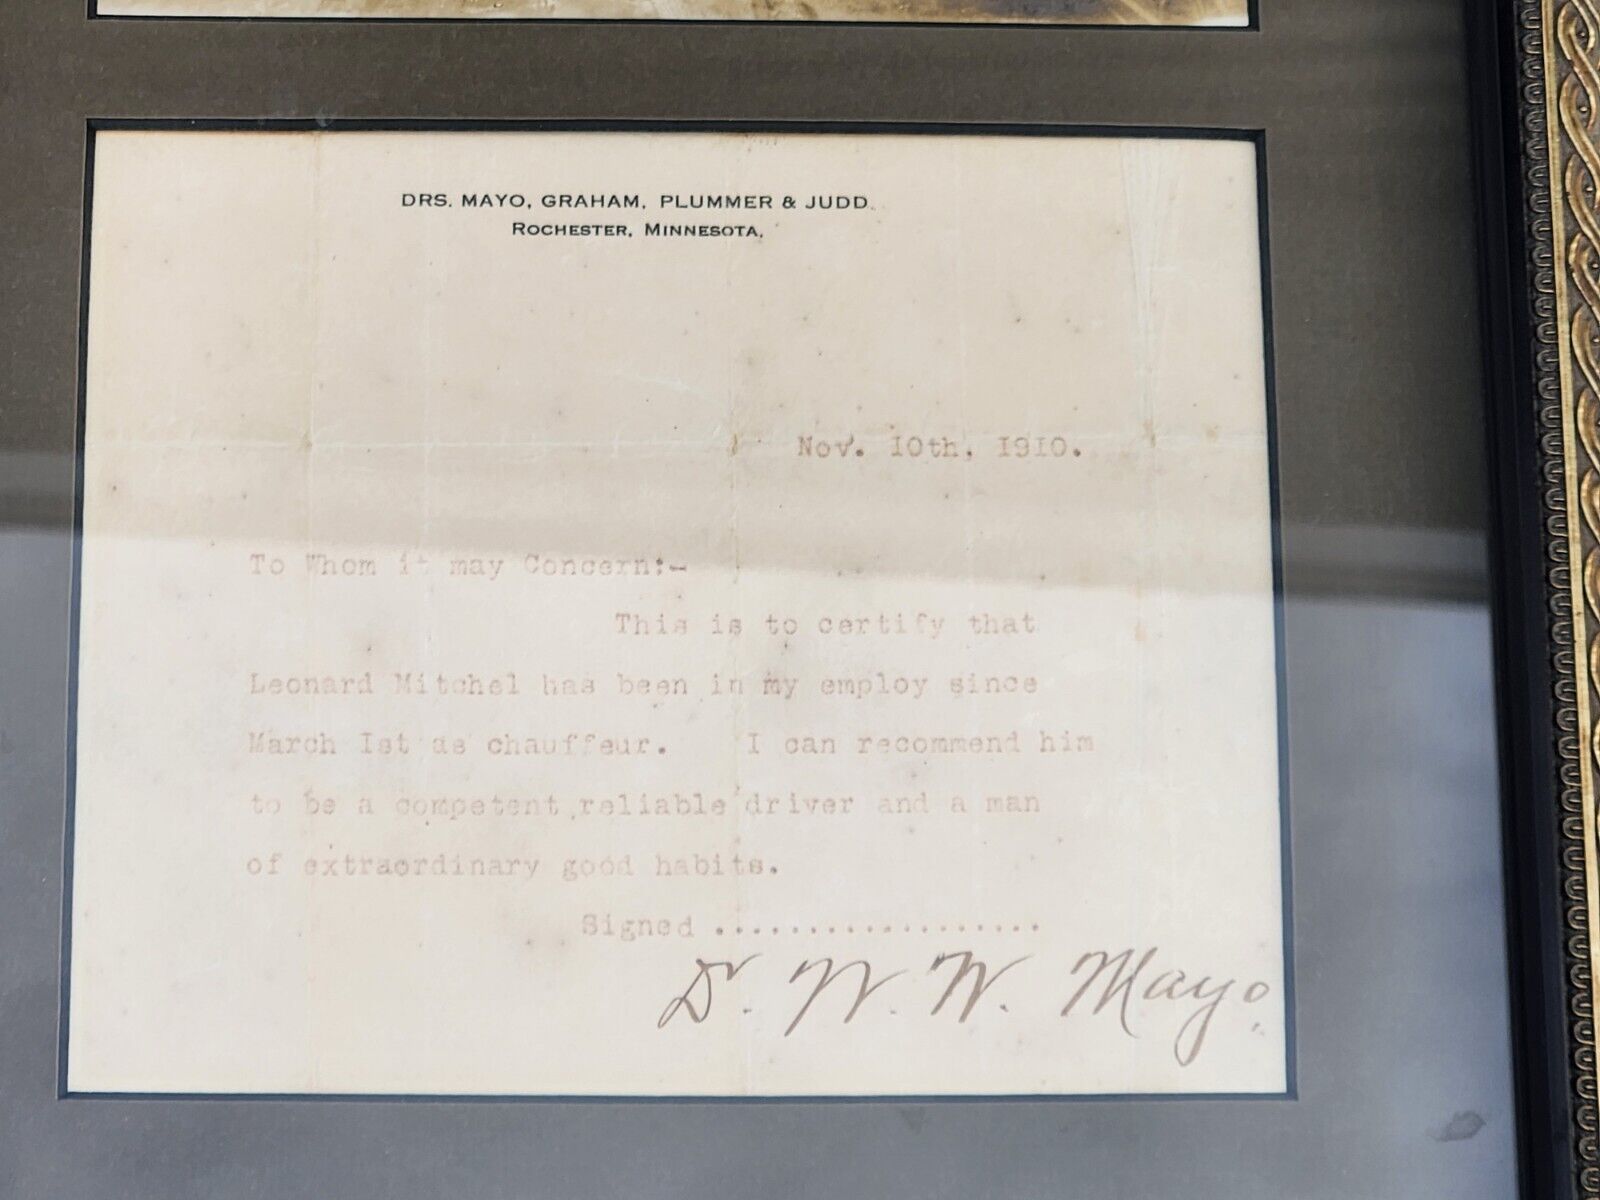 DRS. MAYO, GRAHAM, PLUMMER & JUDD.
ROCHESTER, MINNESOTA.
Nov. 10th, 1910.
To Whom it may Concern:-
This is to certify that
Leonard Mitchel has been in my employ since
March Ist as chauffeur. I can recommend him
to be a competent,reliable driver and a man
of extraordinary good habits.
Signed ...................
Dr. W. W. Mayo.